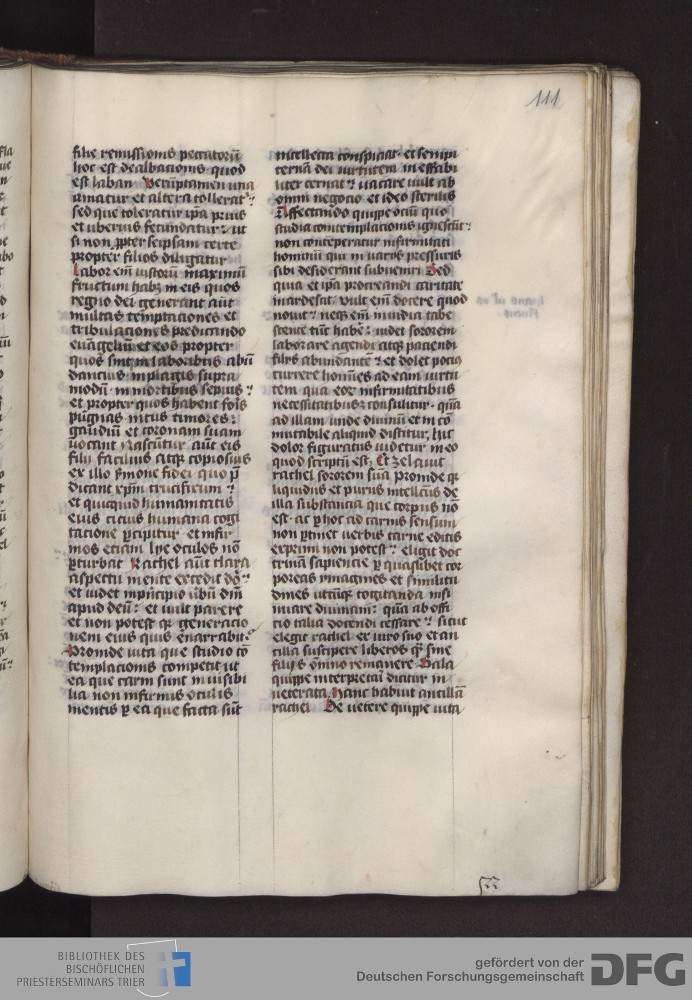 111
filie remissionis peccatorū
hoc est dealbacionis quod
est laban Verūptamen una
amatur et altera tollerat̉
sed que toleratur ip̄a prius
et uberius fecundatur ut
si non ꝓpter seipsam certe
propter filios diligatur
Labor em̄ iustorū maximū
fructum habꝫ in eis quos
regno dei generant aūt
multas temptaciones et
tribulaciones predicando
euāgeliū et eos propter
quos sunt in laboribus abū
dancius in plagis supra
modū in mortibus sepius
et propter quos habent foīs
pugnas intus timores
gaudiū et coronam suam
uocant Nascūtur aūt eis
filii facilius atqꝫ copiosius
ex illo s̄mone fidei quo p̄
dicant xp̄m crucifixum
et quicquid humanitatis
eius cicius humana cogi
tacione ꝑcipitur et infir
mos etiam lye oculos nō
ꝑturbat Rachel aūt clara
aspectu mente excedit dō
et uidet in p̄ncipio ūbū dm̄
apud deū et uult parere
et non potest qꝛ generacio
nem eius quis enarrabit
Proinde uita que studio cō
templacionis competit ut
ea que carni sunt inuisibi
lia non infirmis oculis
mentis ꝑ ea que facta sūt
intellecta conspiciat et sempi
ternā dei uirtutem ineffabi
liter cernat uacare uult ab
omni negocio et ideo sterilis
Affectando quippe ociū quo
studia contemplacionis ignescūt
non contēperatur infirmitati
hominū qui in uariis pressuris
sibi desiderant subueniri Sed
quia et ip̄a procreandi caritate
inardescit uult em̄ docere quod
nouit neqꝫ em̄ inuidia tabe
scente tūc habē uidet sororem
laborare agendi atqꝫ paciendi
filiis abundantē et dolet pocius
currere homīes ad eam uirtu
tem qua eoꝝ infirmitatibus
necessitatibusqꝫ consulitur quā
ad illam unde diuinū et in cō
mutabile aliquid discitur, hic
dolor figuratus uidetur in eo
quod scriptū est Et zelauit
rachel sororem suā Proinde qꝛ
liquidus et purus intellc̄us de
illa substancia que corpus nō
est ac ꝑ hoc ad carnis sensum
non ꝑtinet uerbis carne editis
exprimi non potest eligit doc
trinā sapiencie ꝑ quaslibet cor
poreas ymagines et similitu
dines utcūqꝫ cogitanda insi
nuare diuinam quā ab offi
cio talia docendi cessare sicut
elegit rachel ex uiro suo et an
cilla suscipere liberos qꝫ sine
filiis om̄ino remanere Bala
quippe interpretari dicitur in
ueterata Hanc habuit ancillā
rachel De uetere quippe uita
BIBLIOTHEK DES
BISCHÖFLICHEN
PRIESTERSEMINARS TRIER
gefördert von der
Deutschen Forschungsgemeinschaft
DFG